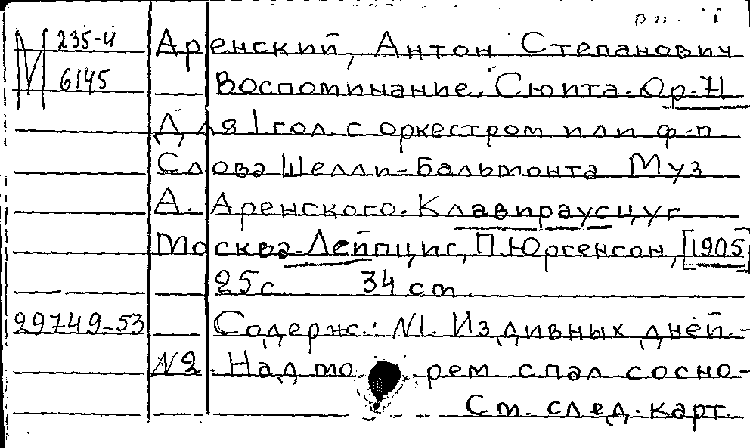 М 235-И Аренский, Антон Степанович
6145 Воспоминание. Сюита. Op. 71
Для 1 гол. с оркестром или ф-п
Слова Шелли-Бальмонта Муз
А. Аренского. Клавираусцуг
Москва-Лейпциг, П. Юргенсон, [1905]
25 с 34 cm
29749-53 Содерж.: N1. Из дивных дней.
N2. Над мо рем спал сосно-
См. след. карт.